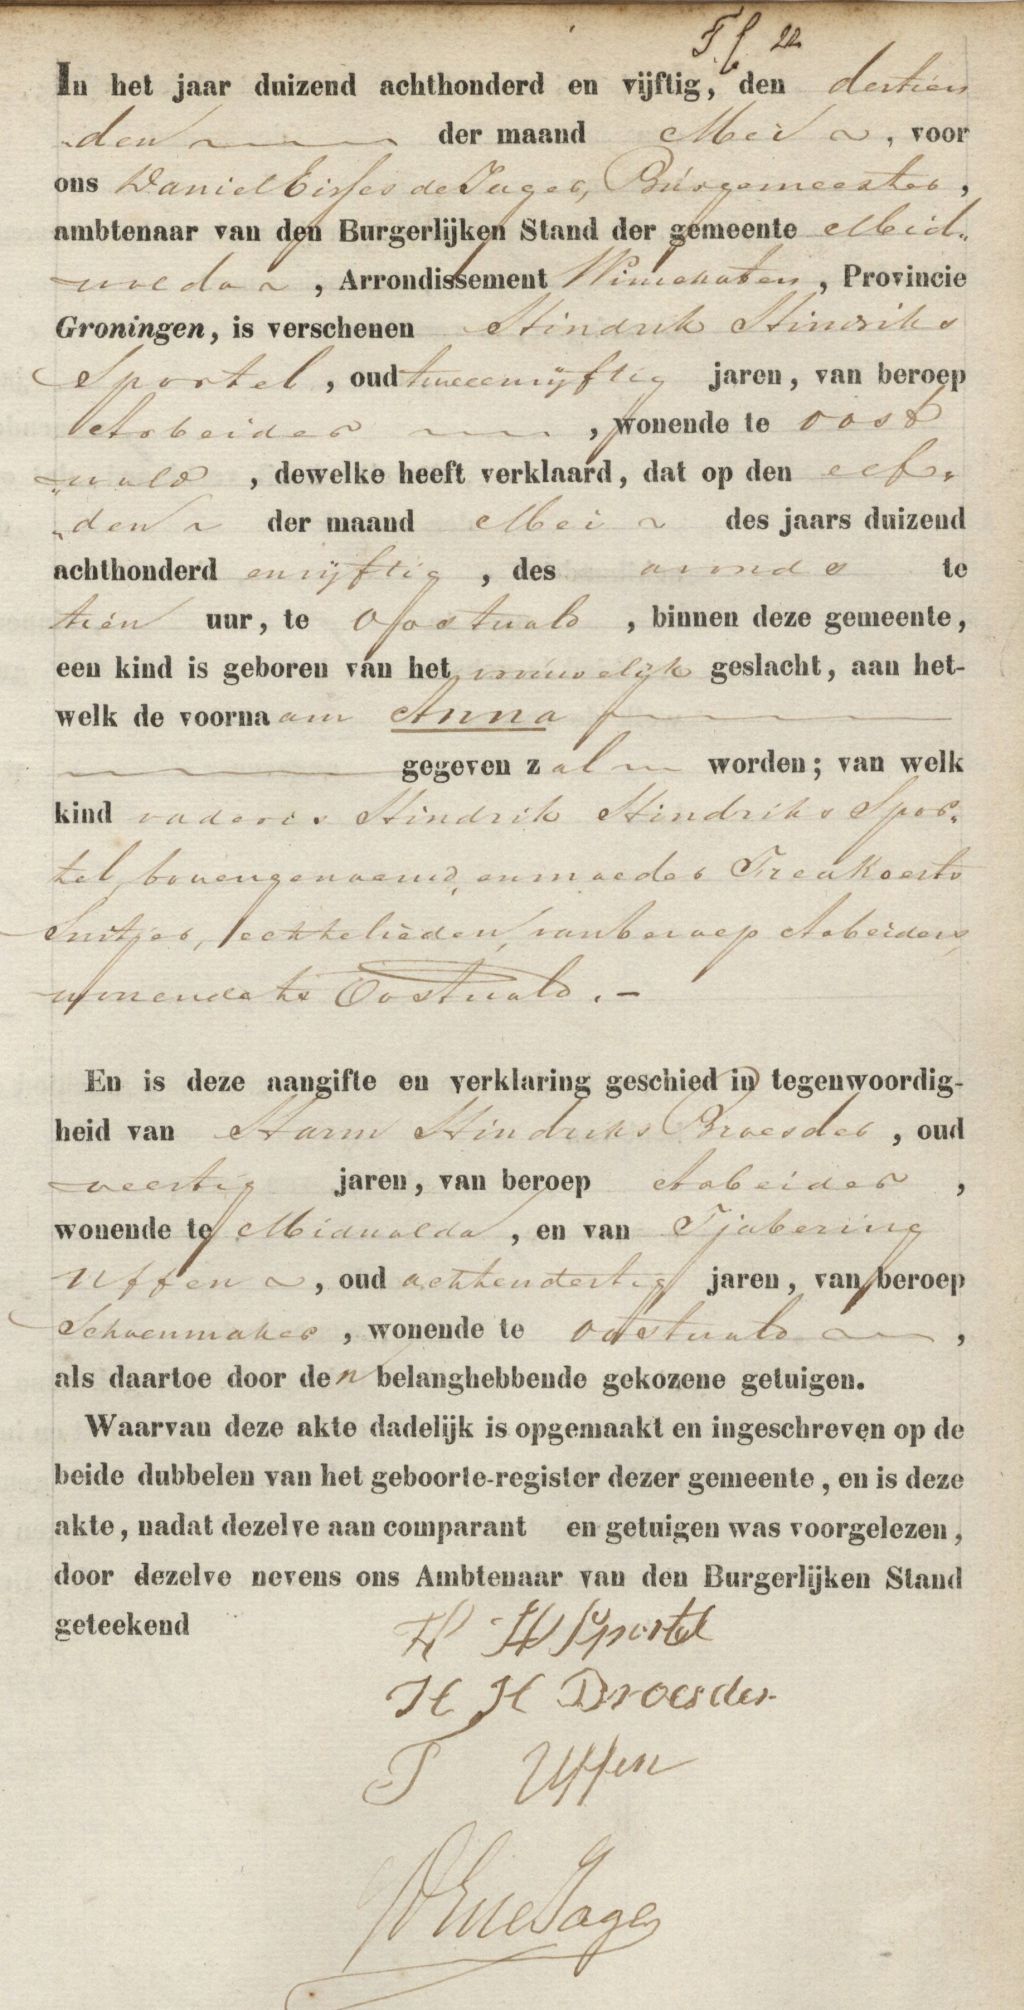 Tf 22
In het jaar duizend achthonderd en vijftig, den dertien
den der maand Mei, voor
ons Daniel Eisses de Jager, Burgemeester,
ambtenaar van den Burgerlijken Stand der gemeente Mid-
wolda, Arrondissement Winschoten, Provincie
Groningen, is verschenen Hindrik Hindriks
Sportel, oud tweeenvijftig jaren, van beroep
Arbeider, wonende te Oost
wold, dewelke heeft verklaard, dat op den elf-
den der maand Mei des jaars duizend
achthonderd en vijftig, des avonds te
tien uur, te Oostwold, binnen deze gemeente,
een kind is geboren van het vrouwelijk geslacht, aan het-
welk de voornaam Anna
gegeven zal worden; van welk
kind vader is Hindrik Hindriks Spor-
tel, bovengenoemd, en moeder Freukoerts
Smitjer, echtelieden, van beroep Arbeiders,
wonende te Oostwold.-
En is deze aangifte en verklaring geschied in tegenwoordig-
heid van Harm Hindriks Broesder, oud
veertig jaren, van beroep Arbeider,
wonende te Midwolda, en van Tjabering
Uffen, oud achtendertig jaren, van beroep
Schoenmaker, wonende te Oostwold,
als daartoe door den belanghebbende gekozene getuigen.
Waarvan deze akte dadelijk is opgemaakt en ingeschreven op de
beide dubbelen van het geboorte-register dezer gemeente, en is deze
akte, nadat dezelve aan comparant en getuigen was voorgelezen,
door dezelve nevens ons Ambtenaar van den Burgerlijken Stand
geteekend
H H Sportel
H H Broesder
T Uffen
D E de Jager